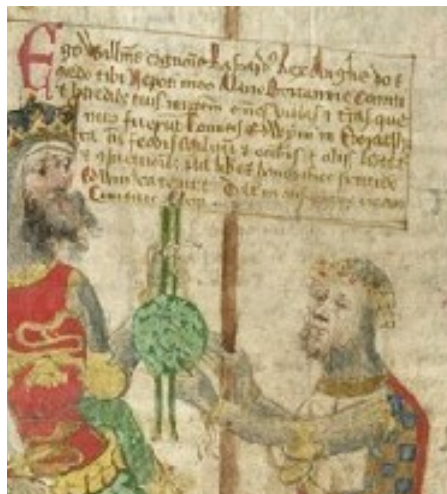 Ego Willms cognoīe Bastard⁹ Rex Anglie do t
cōcedo tibi Nepoti meo Alano Britannie Comiti
t heredib⁹ tuis imppm ōnes villas t tras que
nup fuerut Comitis Edwyni in Eborashi
ra cū feodis militum t eccliis t aliis libertt
t ita libe t honorifice sicut idē
Edwin⁹ ea tenuit Dat in obsidione coram
Civitate Ebor